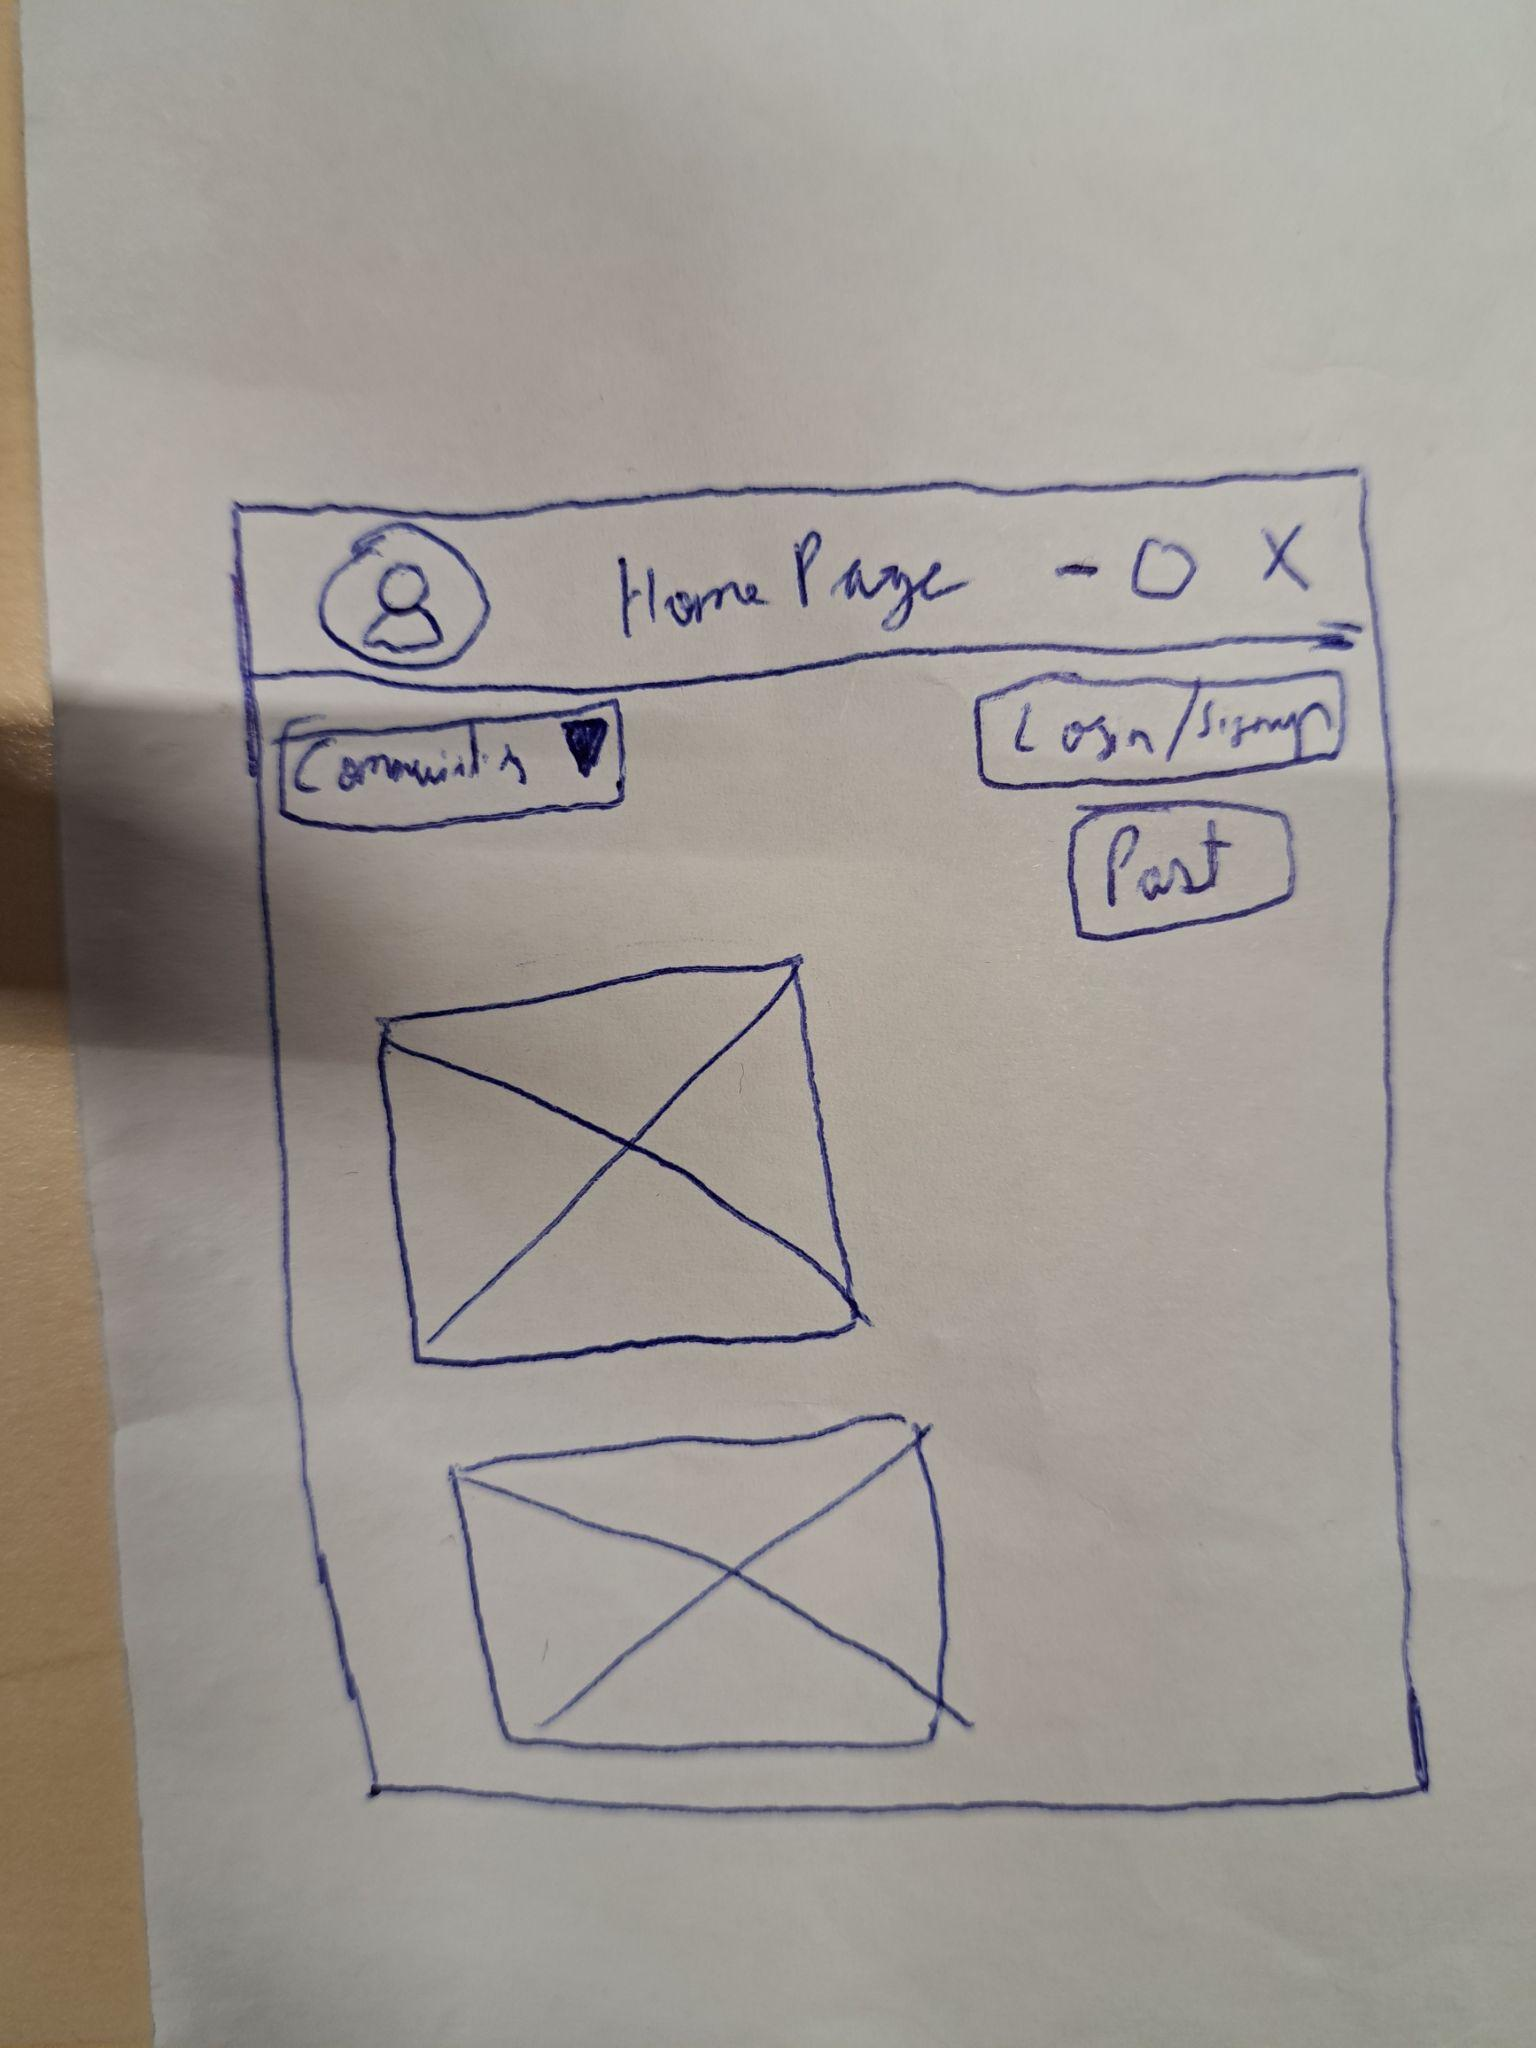 Home Page - O X
Communities
Login/Signup
Post